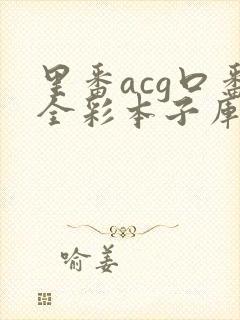 里番acg口番
全彩本子库
喻姜